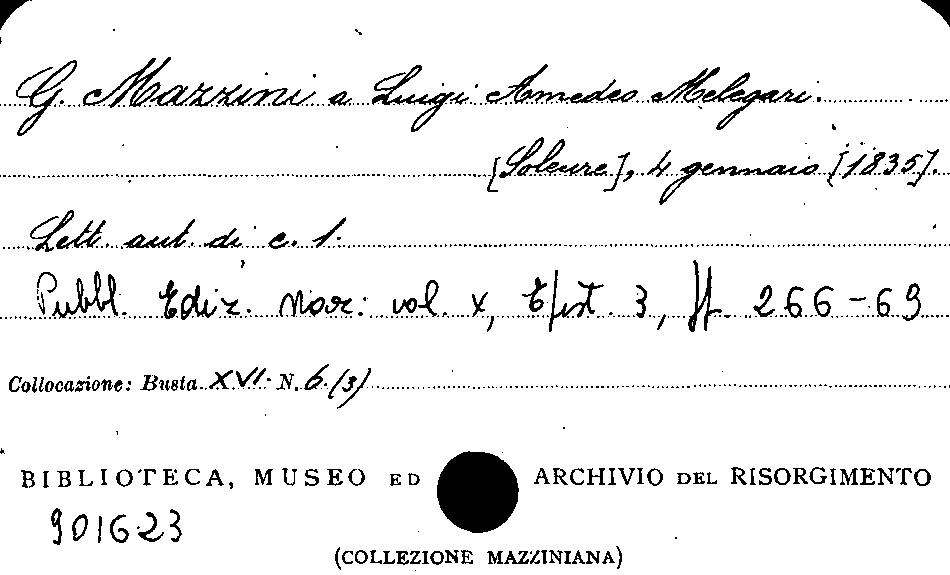 G. Mazzini a Luigi Amedeo Melegari.
[Soleure], 4 gennaio [1835].
Lett. aut. di c. 1.
Pubbl. Ediz. Naz: vol. X, Epist. 3, pp. 266-69
Collocazione: Busta XVI. N. 6. (3)
BIBLIOTECA, MUSEO ED ARCHIVIO DEL RISORGIMENTO
901623
(COLLEZIONE MAZZINIANA)